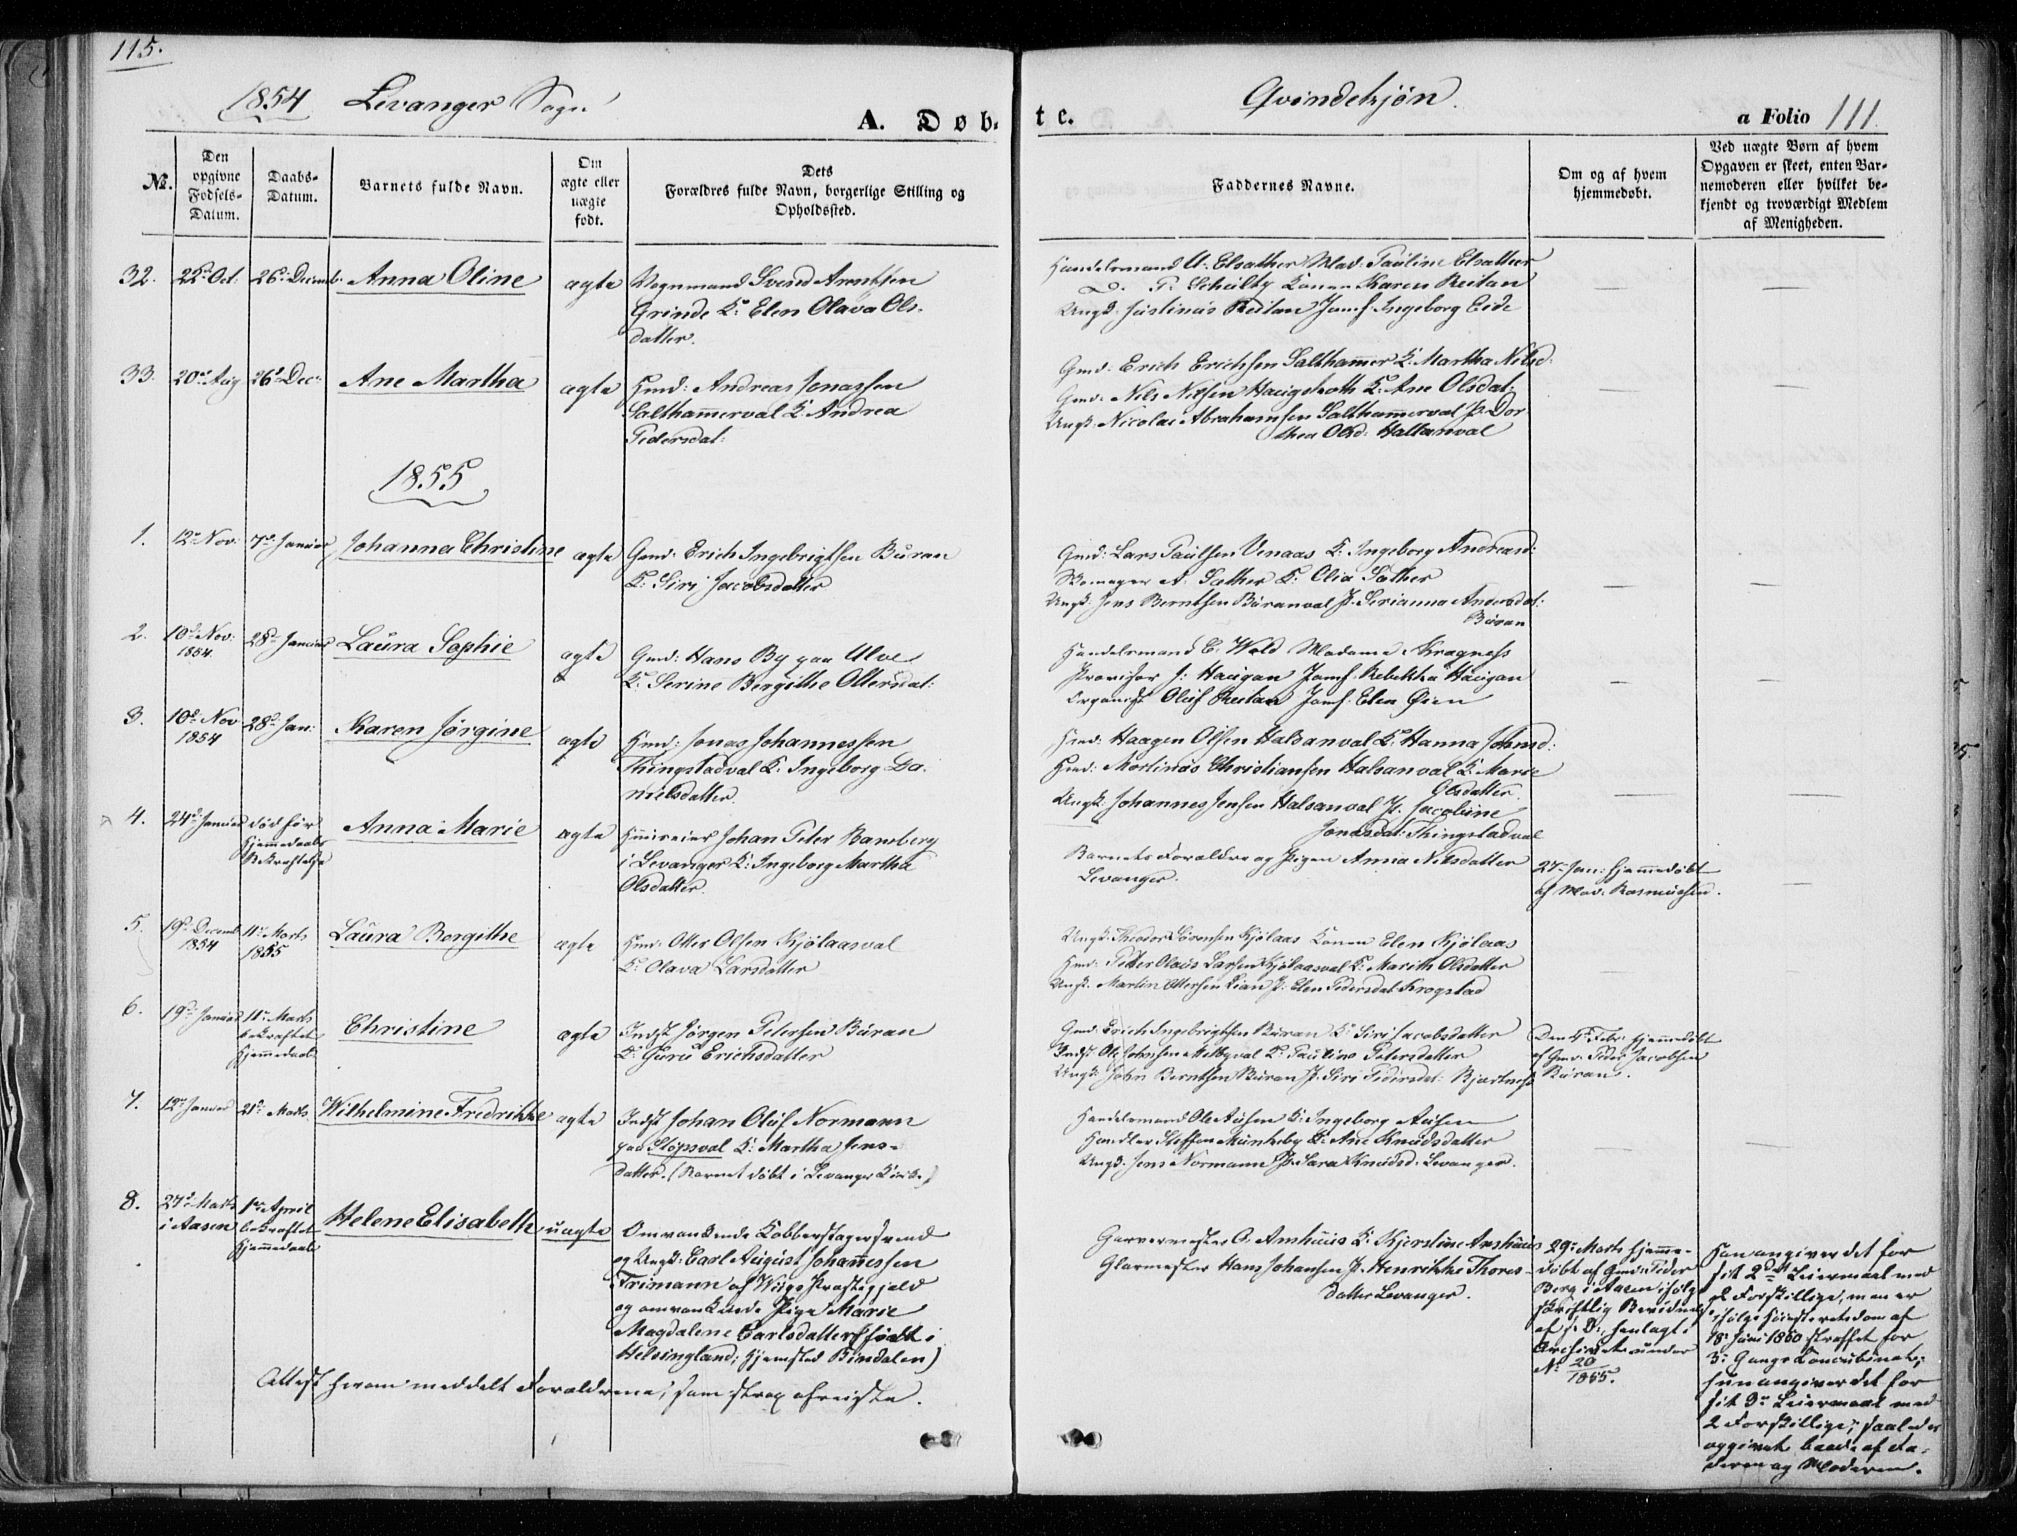 115.
1854 Levanger Sogn
Qvindekjøn.
A. Døb-
te.
a Folio 111.
No.
Den opgivne Fødsels-Datum.
Daabs-Datum.
Barnets fulde Navn.
Om ægte eller uægte født.
Dets Forældres fulde Navn, borgerlige Stilling og Opholdssted.
Faddernes Navne.
Om og af hvem hjemmedøbt.
Ved uægte Børn af hvem Opgaven er skeet, enten Barnemoderen eller hvilket bekjendt og troværdigt Medlem af Menigheden.
32. 22de Oct: 26de Decemb. Anna Oline ægte Vognmand Svend Arntsen
Grinde K: Elen Olava Ols-
datter.
Handelsmand A. Elsather Mad: Pauline Elsather
D. P. Schultz Konen Karen Reitan
Ungk: Justinus Reitan Jomf: Ingeborg Eide
33. 20de Aug 26de Dec: Ane Martha ægte Hmd: Andreas Jonassen
Salthammerval K: Andrea
Pedersdat:
Gmd: Erich Erichsen Salthammer K: Martha Nilsd:
Gmd: Nils Nilsen Haugskoth K: Ane Olsdat:
Ungk: Nicolai Abrahamsen Salthammerval P: Dor-
thea Olsd: Hallanval
1855
1. 12te Nov: 7de Januar Johanna Christine ægte Gmd: Erich Ingebrigtsen Buran
K: Siri Jacobsdatter
Gmd: Lars Paulsen Venaas K: Ingeborg Andreasd:
A. Sæther K: Olia Sæther
Ungk: Jens Berntsen Buranval P: Serianna Andersdat:
Buran
2. 10de Nov: 1854. 28de Januar Laura Sophie ægte Gmd: Hans By paa Ulve
K: Serine Bergithe Ottersdat:
Handelsmand E. Wold Madame Kragness
Provisor J: Haugan Jomf: Rebekka Haugan
Organist Oluf Reitan Jomf: Elen Øien
3. 10de Nov 1854 28de Jan: Karen Jørgine ægte Hmd: Jonas Johannessen
Thingstadval K: Ingeborg Da-
nielsdatter.
Hmd: Haagen Olsen Halsanval K: Hanna Johnsd:
Hmd: Mortinus Christiansen Halsanval K: Marie
Olsdatter.
Ungk: Johannes Jensen Halsanval P: Jacobine
Jonasdat: Thingstadval
4. 24de Januar død før Hjemmedaabs Bekræftelse Anna Marie ægte Huuseier Johan Peter Bamberg
i Levanger K: Ingeborg Martha
Olsdatter.
Barnets Forældre og Pigen Anna Nilsdatter
Levanger.
27de Jan: hjemmedøbt
af Mad: Rasmussen.
5. 19de Decemb 1854 11te Marts 1855 Laura Bergithe ægte Hmd: Otter Olsen Kjølaasval
K: Olava Larsdatter
Ungk: Theodor Sørensen Kjølaas Konen Elen Kjølaas
Hmd: Petter Olaus Larsen Kjølaasval K: Marith Olsdatter
Ungk: Martin Ottersen Lian P: Elen Pedersdat: Krogstad
6. 19de Januar 11te Marts bekræftet Hjemmedaab Christine ægte Indst Jørgen Petersen Buran
K: Guru Erichsdatter
Gmd: Erich Ingebrigtsen Buran K: Siri Jacobsdatter
Indst Ole Johnsen Melbyval K: Pauline Petersdatter
Ungk: John Berntsen Buran P: Siri Pedersdat: Bjartnes
Den 4de Febr. hjemmedøbt
af Gmd: Peder Jacobsen
Buran.
7. 12te Januar 21de Marts Wilhelmine Fredrikke ægte Indst Johan Oluf Normann
paa Stopsval K: Martha Jens-
datter. (Barnet døbt i Levanger Kirke)
Handelsmand Ole Ausen K: Ingeborg Ausen
Handler Steffen Munkeby K: Ane Knudsdatter
Ungk: Jens Normann P: Sara Knudsd: Levanger.
8. 27de Marts i Aasen 1ste April bekræftet Hjemmedaab Helene Elisabeth uægte Omvankende Kobberslagersvend
og Ungk: Carl August Johannessen
Trimann af Wiigs Præstegjeld
og omvankende Pige Marie
Magdalene Carlsdatter (født i
Helsingland; Hjemsted Bindalen)
Attest herom meddelt Forældrene, som strax afreiste.
Garvermester O. Amhuus K: Kjerstine Amhuus
Glarmester Hans Johansen P: Henrikke Thores-
datter Levanger.
29de Marts hjemme-
døbt af Gmd: Peder
Berg i Aasen ifølge
skriftlig Bevidnelse
af s. D. henlagt i
Archivet under
No 20/1855.
Han angiver det for
sit 2det Leiermaal med
2 Forskillige, men er
ifølge Høiesteretsdom af
18de Juni 1850 straffet for
3die Gangs Concubinat;
hun angiver det for
sit 3die Leiermaal med
2 Forskillige; saaledes
opgivet baade af Fa-
deren og Moderen.